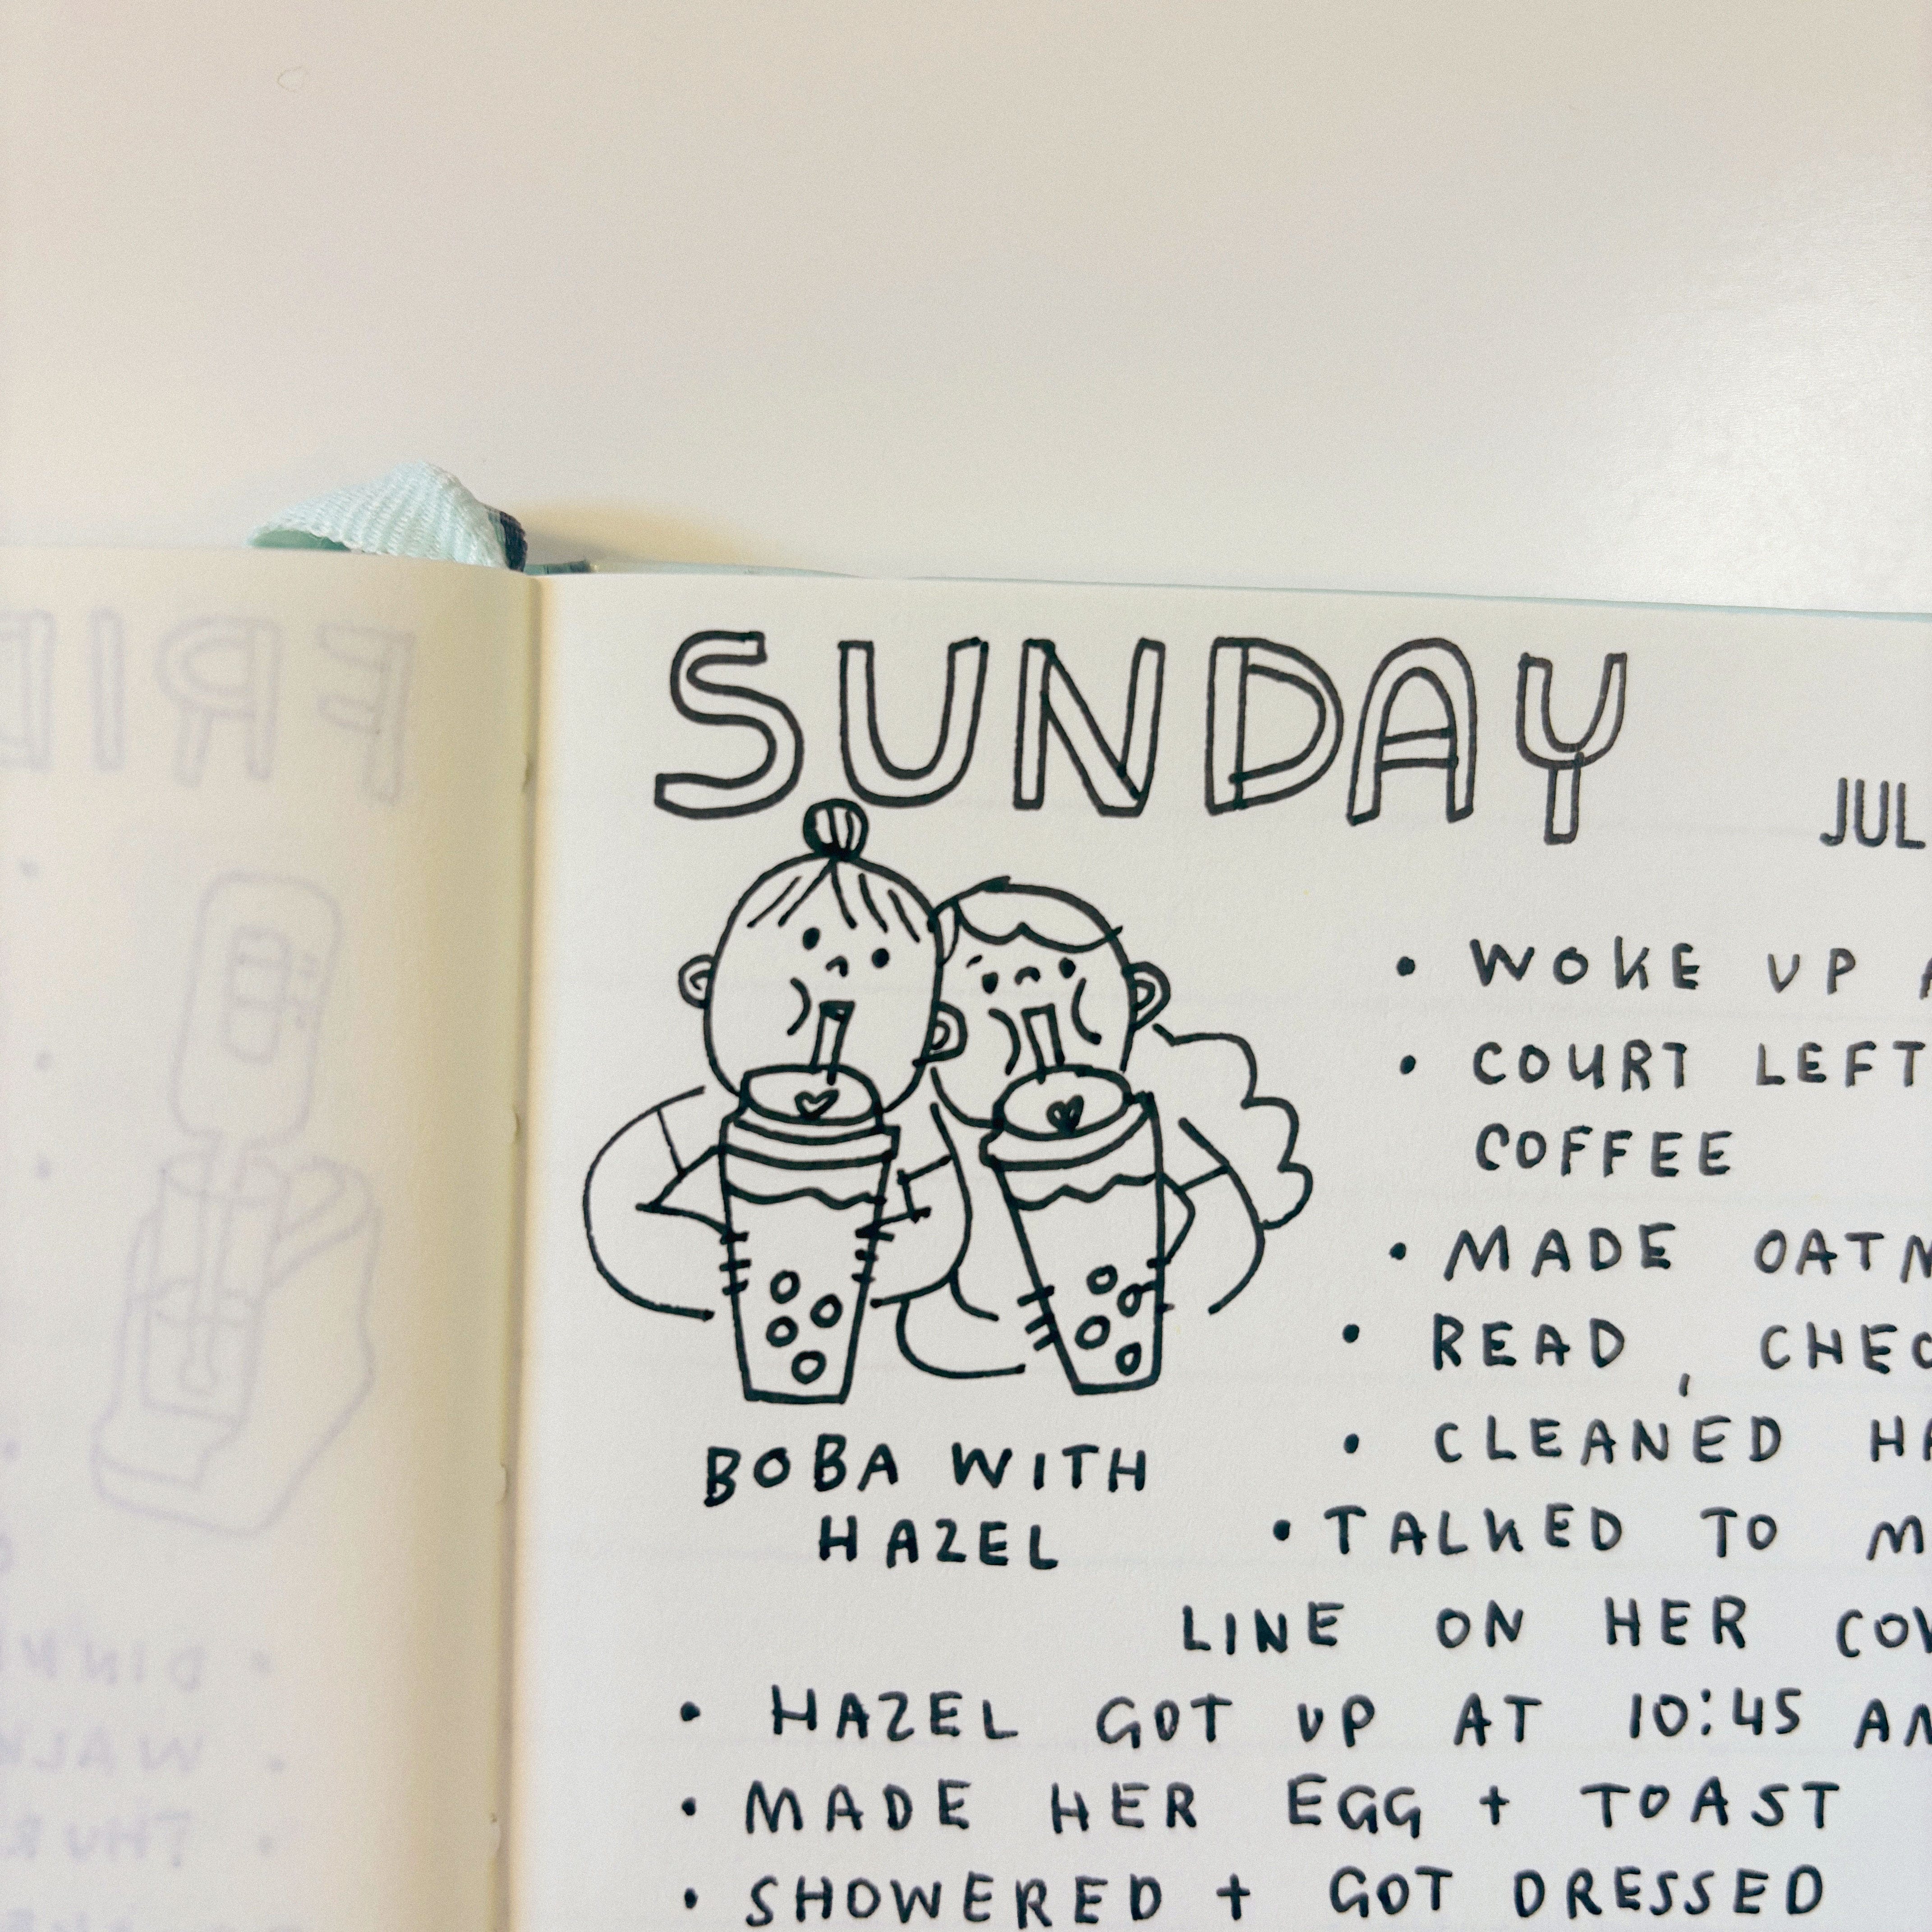 SUNDAY
JUL
BOBA WITH
HAZEL
• WOKE UP
• COURT LEFT
COFFEE
• MADE
• READ,
• CLEANED
• TALKED TO
LINE ON HER
• HAZEL GOT UP AT 10:45
• MADE HER EGG + TOAST
• SHOWERED + GOT DRESSED